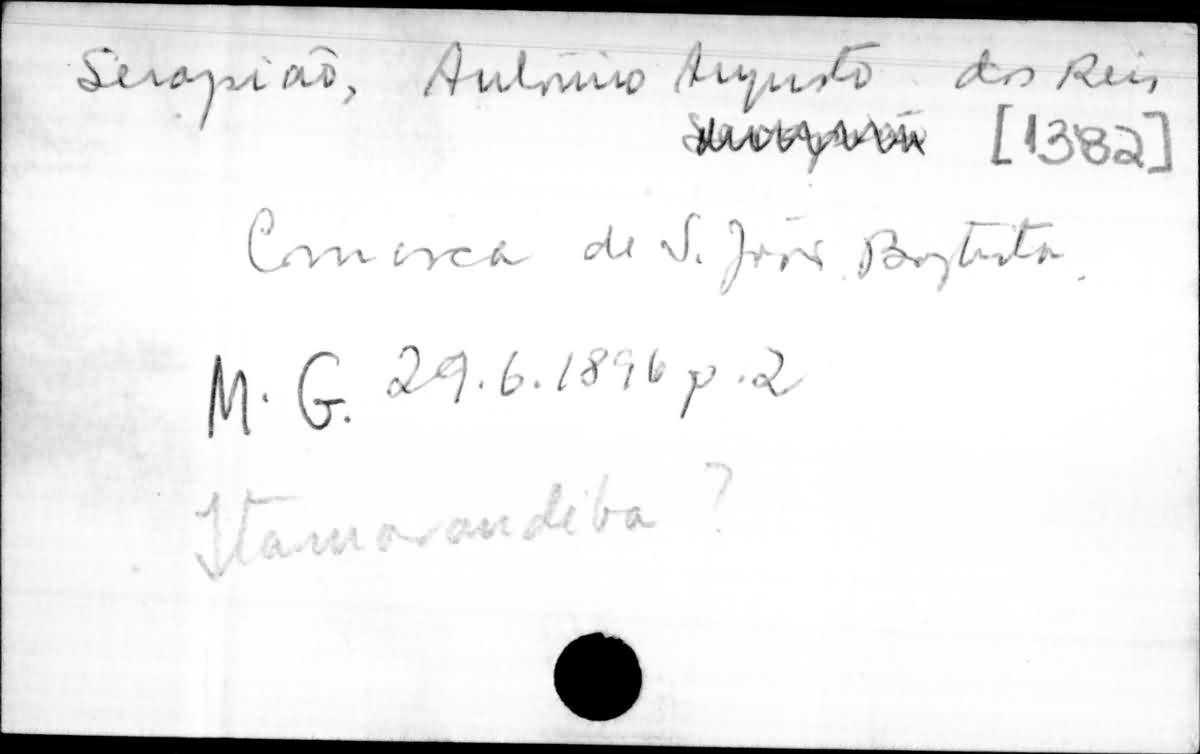 Serapiaõ, Antônio Augusto dos Reis
[1382]
Comarca de S. João Baptista.
M. G. 29.6.1896 p.2
Itamarandiba ?